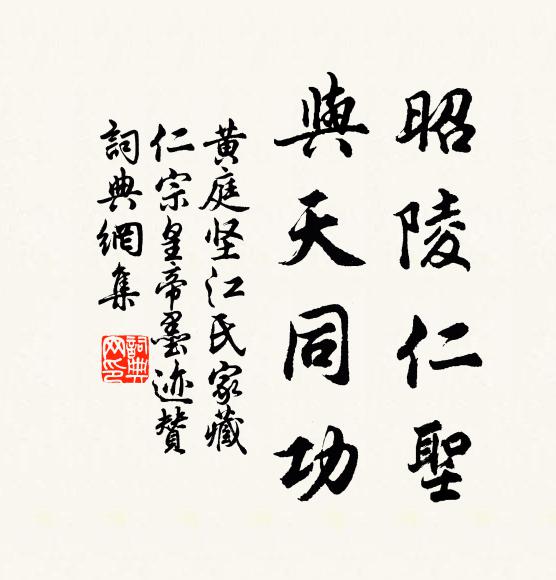 昭陵仁聖
與天同功
黄庭坚江氏家藏
仁宗皇帝墨迹贊
詞典網集
詞典
网印